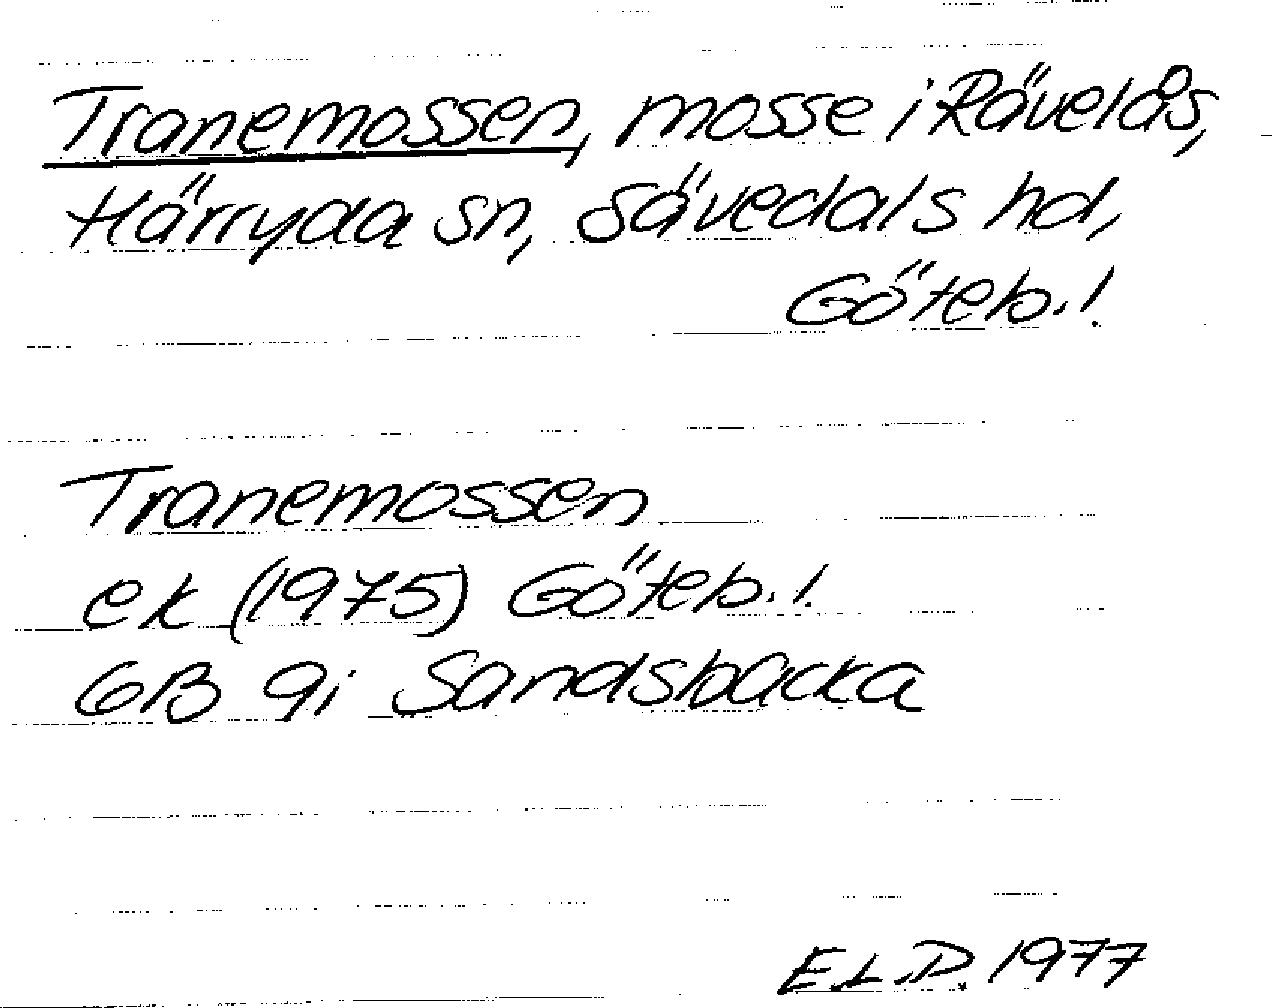 Tranemossen, mosse i Rävelås,
Härryda sn, Sävedals hd,
Göteb.!
Tranemossen
ek (1975) Göteb.!
6B 9i Sandsbacka
E.L.D. 1977